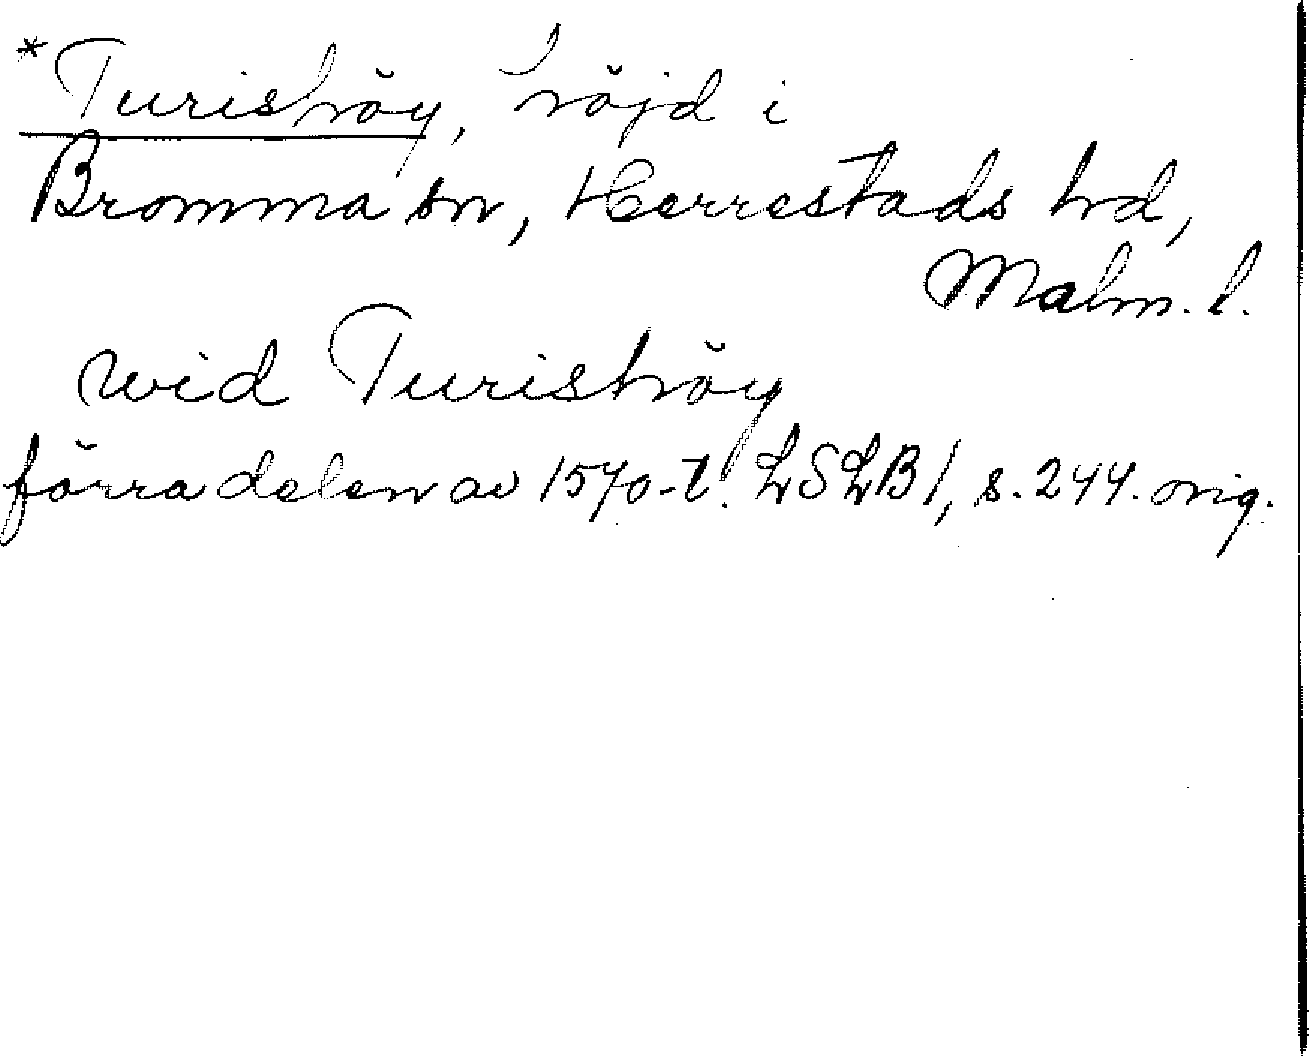 *Turishöy, höjd i
Bromma sn, Herrestads hd,
Malm. l.
wid Turishöy
förra delen av 1570-t. LSLB 1, s. 244. orig.